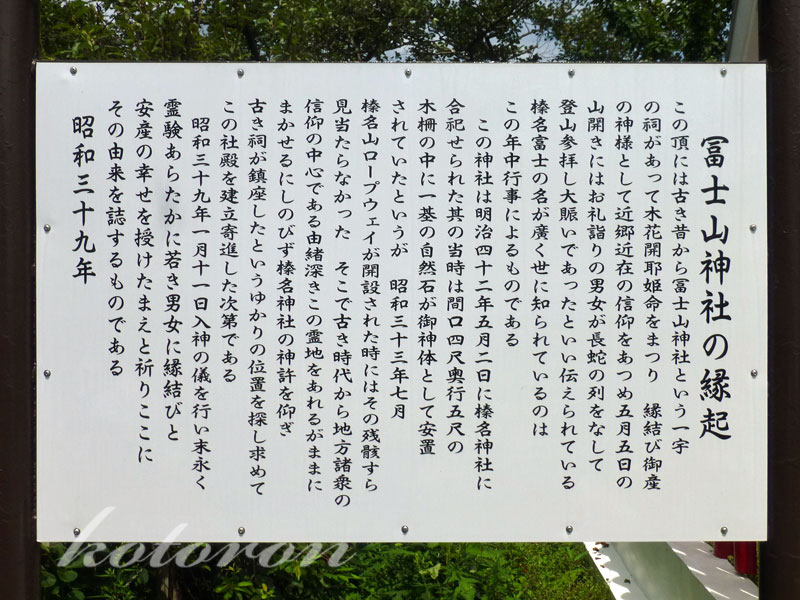 冨士山神社の縁起
この頂には古き昔から冨士山神社という一宇
の祠があって木花開耶姫命をまつり　縁結び御産
の神様として近郷近在の信仰をあつめ五月五日の
山開きにはお礼詣りの男女が長蛇の列をなして
登山参拝し大賑いであったといい伝えられている
榛名富士の名が廣く世に知られているのは
この年中行事によるものである
この神社は明治四十二年五月二日に榛名神社に
合祀せられた其の当時は間口四尺奥行五尺の
木柵の中に一基の自然石が御神体として安置
されていたというが　昭和三十三年七月
榛名山ロープウェイが開設された時にはその残骸すら
見当たらなかった　そこで古き時代から地方諸衆の
信仰の中心である由緒深きこの霊地をあれるがままに
まかせるにしのびず榛名神社の神許を仰ぎ
古き祠が鎮座したというゆかりの位置を探し求めて
この社殿を建立寄進した次第である
昭和三十九年一月十一日入神の儀を行い末永く
霊験あらたかに若き男女に縁結びと
安産の幸せを授けたまえと祈りここに
その由来を誌するものである
昭和三十九年
kotoron